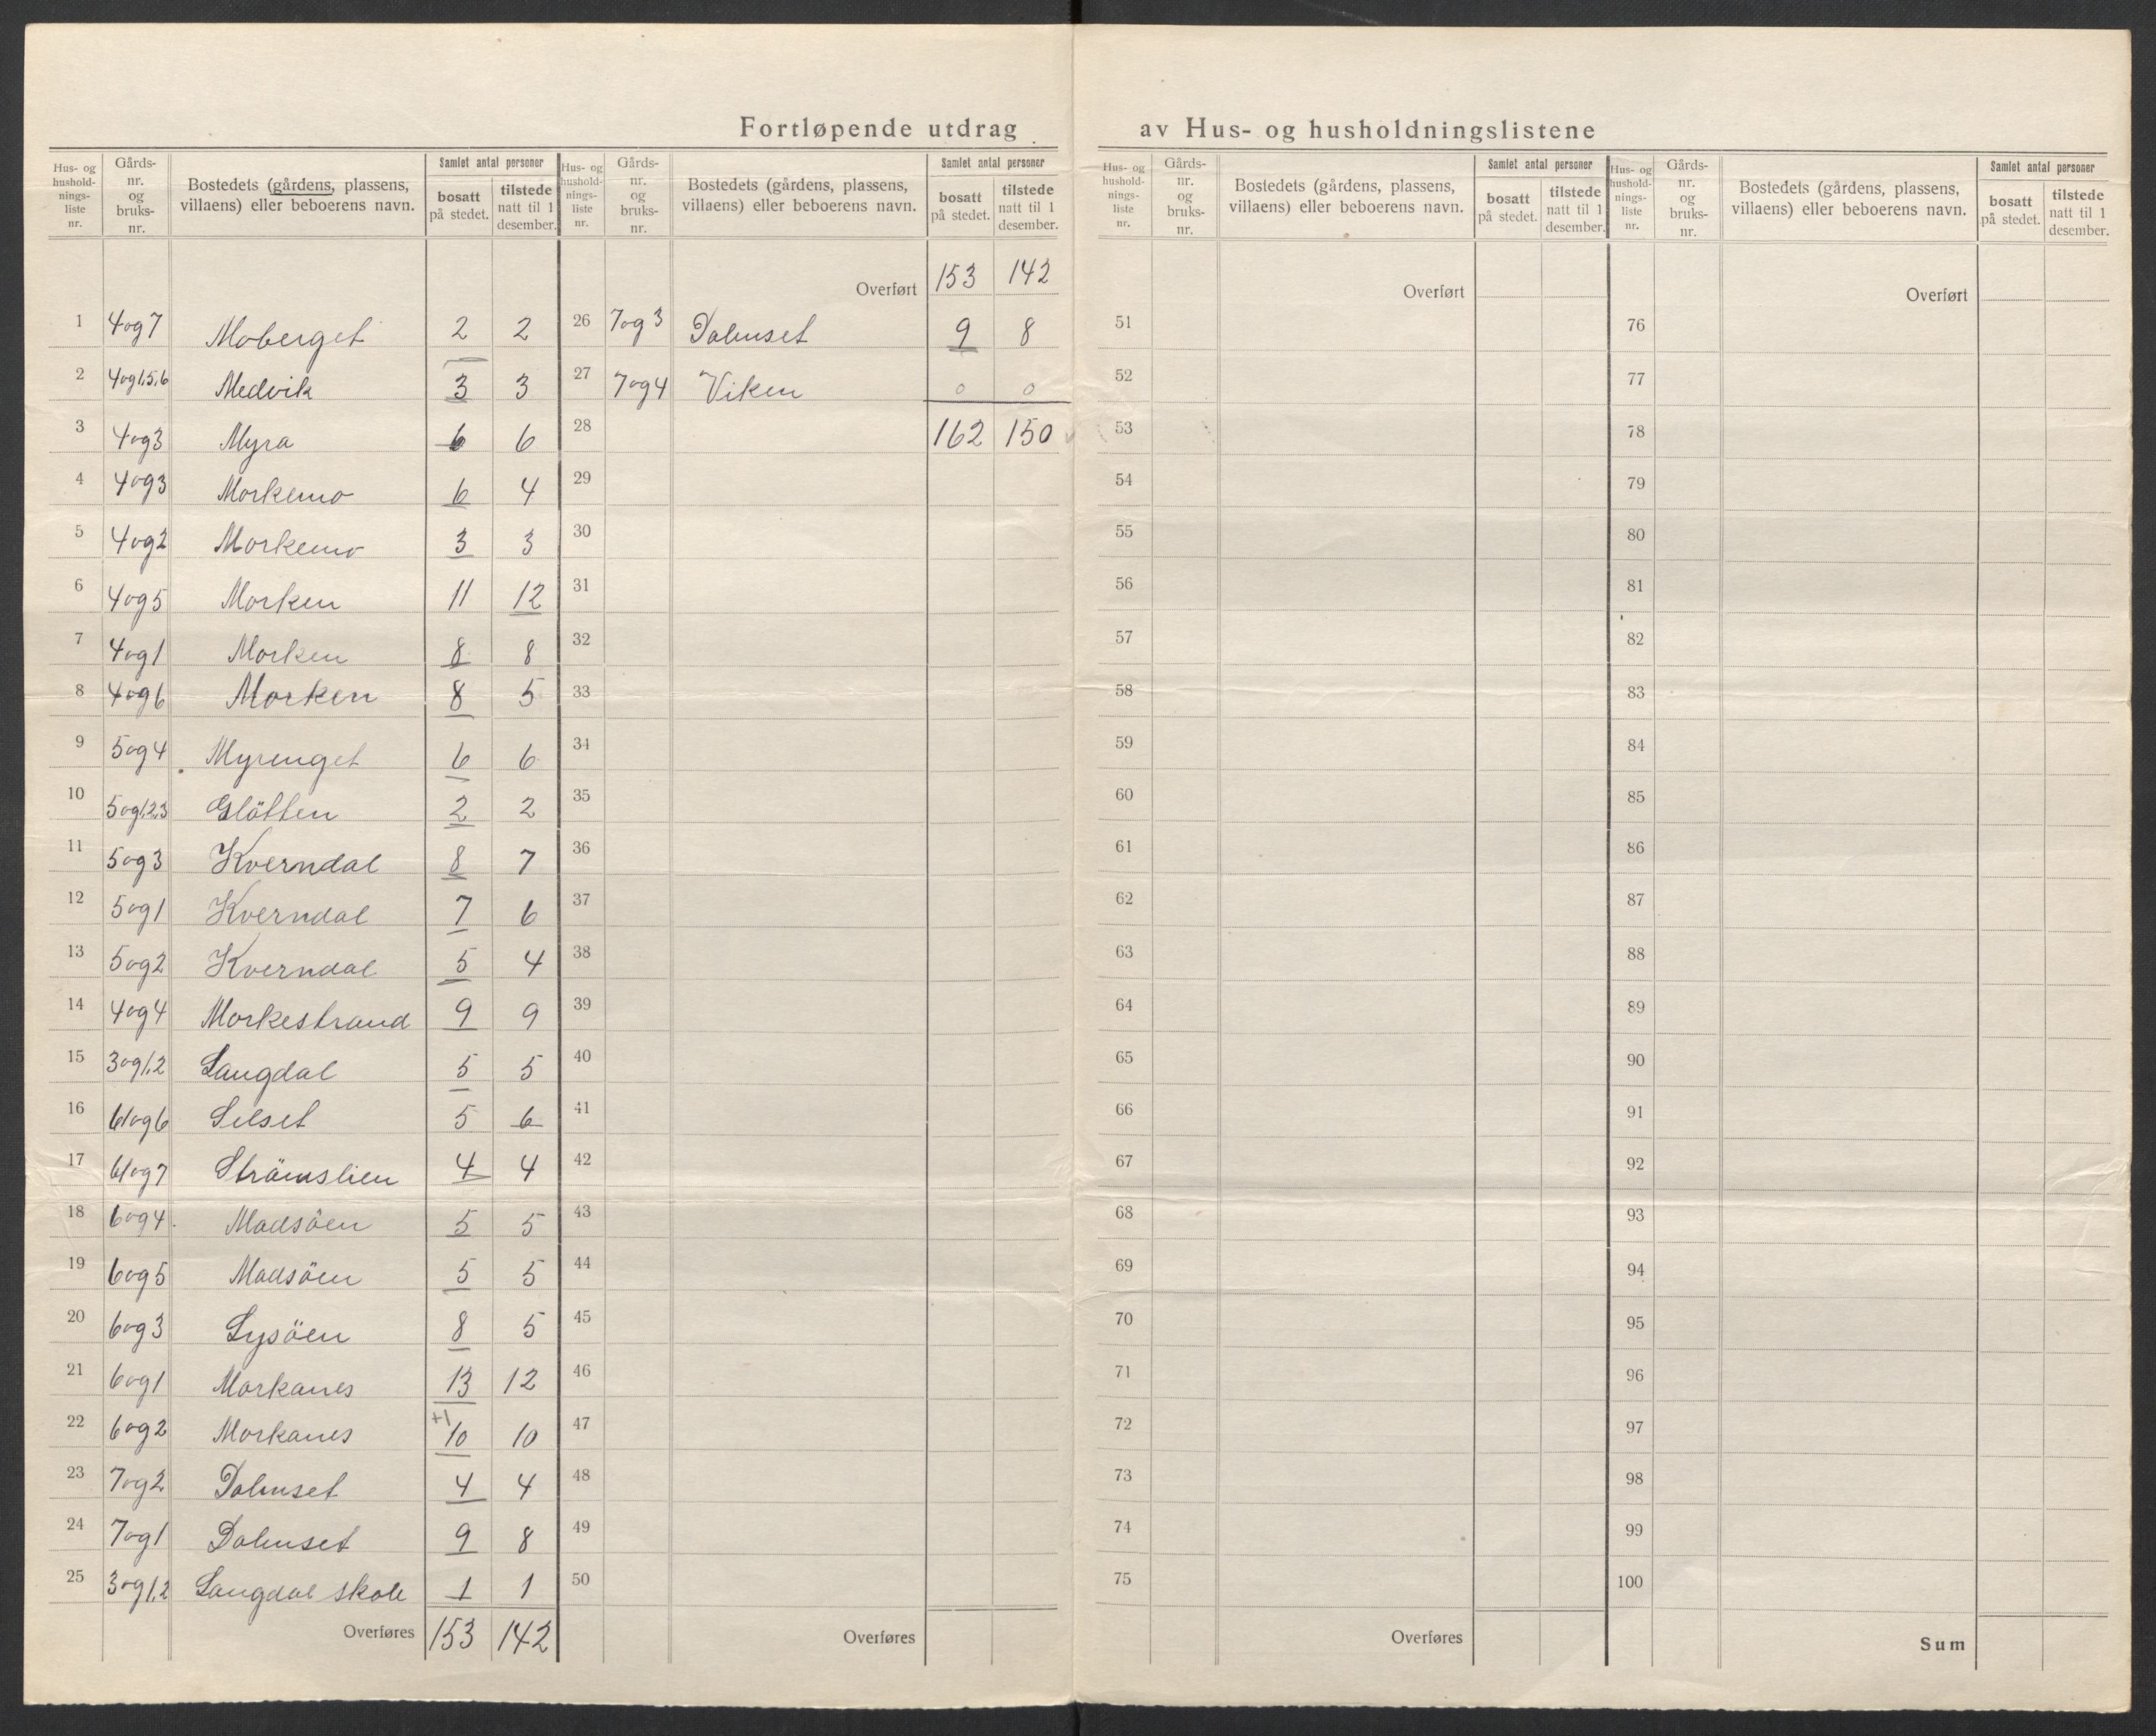 Fortløpende utdrag av Hus- og husholdningslistene
Hus- og hushold-nings-liste nr. Gårds-nr. og bruks-nr. Bostedets (gårdens, plassens, villaens) eller beboerens navn. Samlet antal personer bosatt på stedet. tilstede natt til 1 desember.
1 4og7 Moberget 2 2
2 4og1,5,6 Medvik 3 3
3 4og3 Myra 6 6
4 4og3 Morkemo 6 4
5 4og2 Morkemo 3 3
6 4og5 Morken 11 12
7 4og1 Morken 8 8
8 4og6 Morken 8 5
9 5og4 Myrenget 6 6
10 5og1,2,3 Glötten 2 2
11 5og3 Kverndal 8 7
12 5og1 Kverndal 7 6
13 5og2 Kverndal 5 4
14 4og4 Morkestrand 9 9
15 3og1,2 Langdal 5 5
16 61og6 Selset 5 6
17 61og7 Strömslien 4 4
18 6og4 Madsöen 5 5
19 6og5 Madsöen 5 5
20 6og3 Lysöen 8 5
21 6og1 Morkanes 13 12
22 6og2 Morkanes +1 10 10
23 7og2 Dalmset 4 4
24 7og1 Dalmset 9 8
25 3og1,2 Langdal skole 1 1
Overføres 153 142
Hus- og hushold-nings-liste nr. Gårds-nr. og bruks-nr. Bostedets (gårdens, plassens, villaens) eller beboerens navn. Samlet antal personer bosatt på stedet. tilstede natt til 1 desember.
Overført 153 142
26 7og3 Dalmset 9 8
27 7og4 Viken 0 0
28 162 150
29
30
31
32
33
34
35
36
37
38
39
40
41
42
43
44
45
46
47
48
49
50
Overføres
Hus- og hushold-nings-liste nr. Gårds-nr. og bruks-nr. Bostedets (gårdens, plassens, villaens) eller beboerens navn. Samlet antal personer bosatt på stedet. tilstede natt til 1 desember.
Overført
51
52
53
54
55
56
57
58
59
60
61
62
63
64
65
66
67
68
69
70
71
72
73
74
75
Overføres
Hus- og hushold-nings-liste nr. Gårds-nr. og bruks-nr. Bostedets (gårdens, plassens, villaens) eller beboerens navn. Samlet antal personer bosatt på stedet. tilstede natt til 1 desember.
Overført
76
77
78
79
80
81
82
83
84
85
86
87
88
89
90
91
92
93
94
95
96
97
98
99
100
Sum